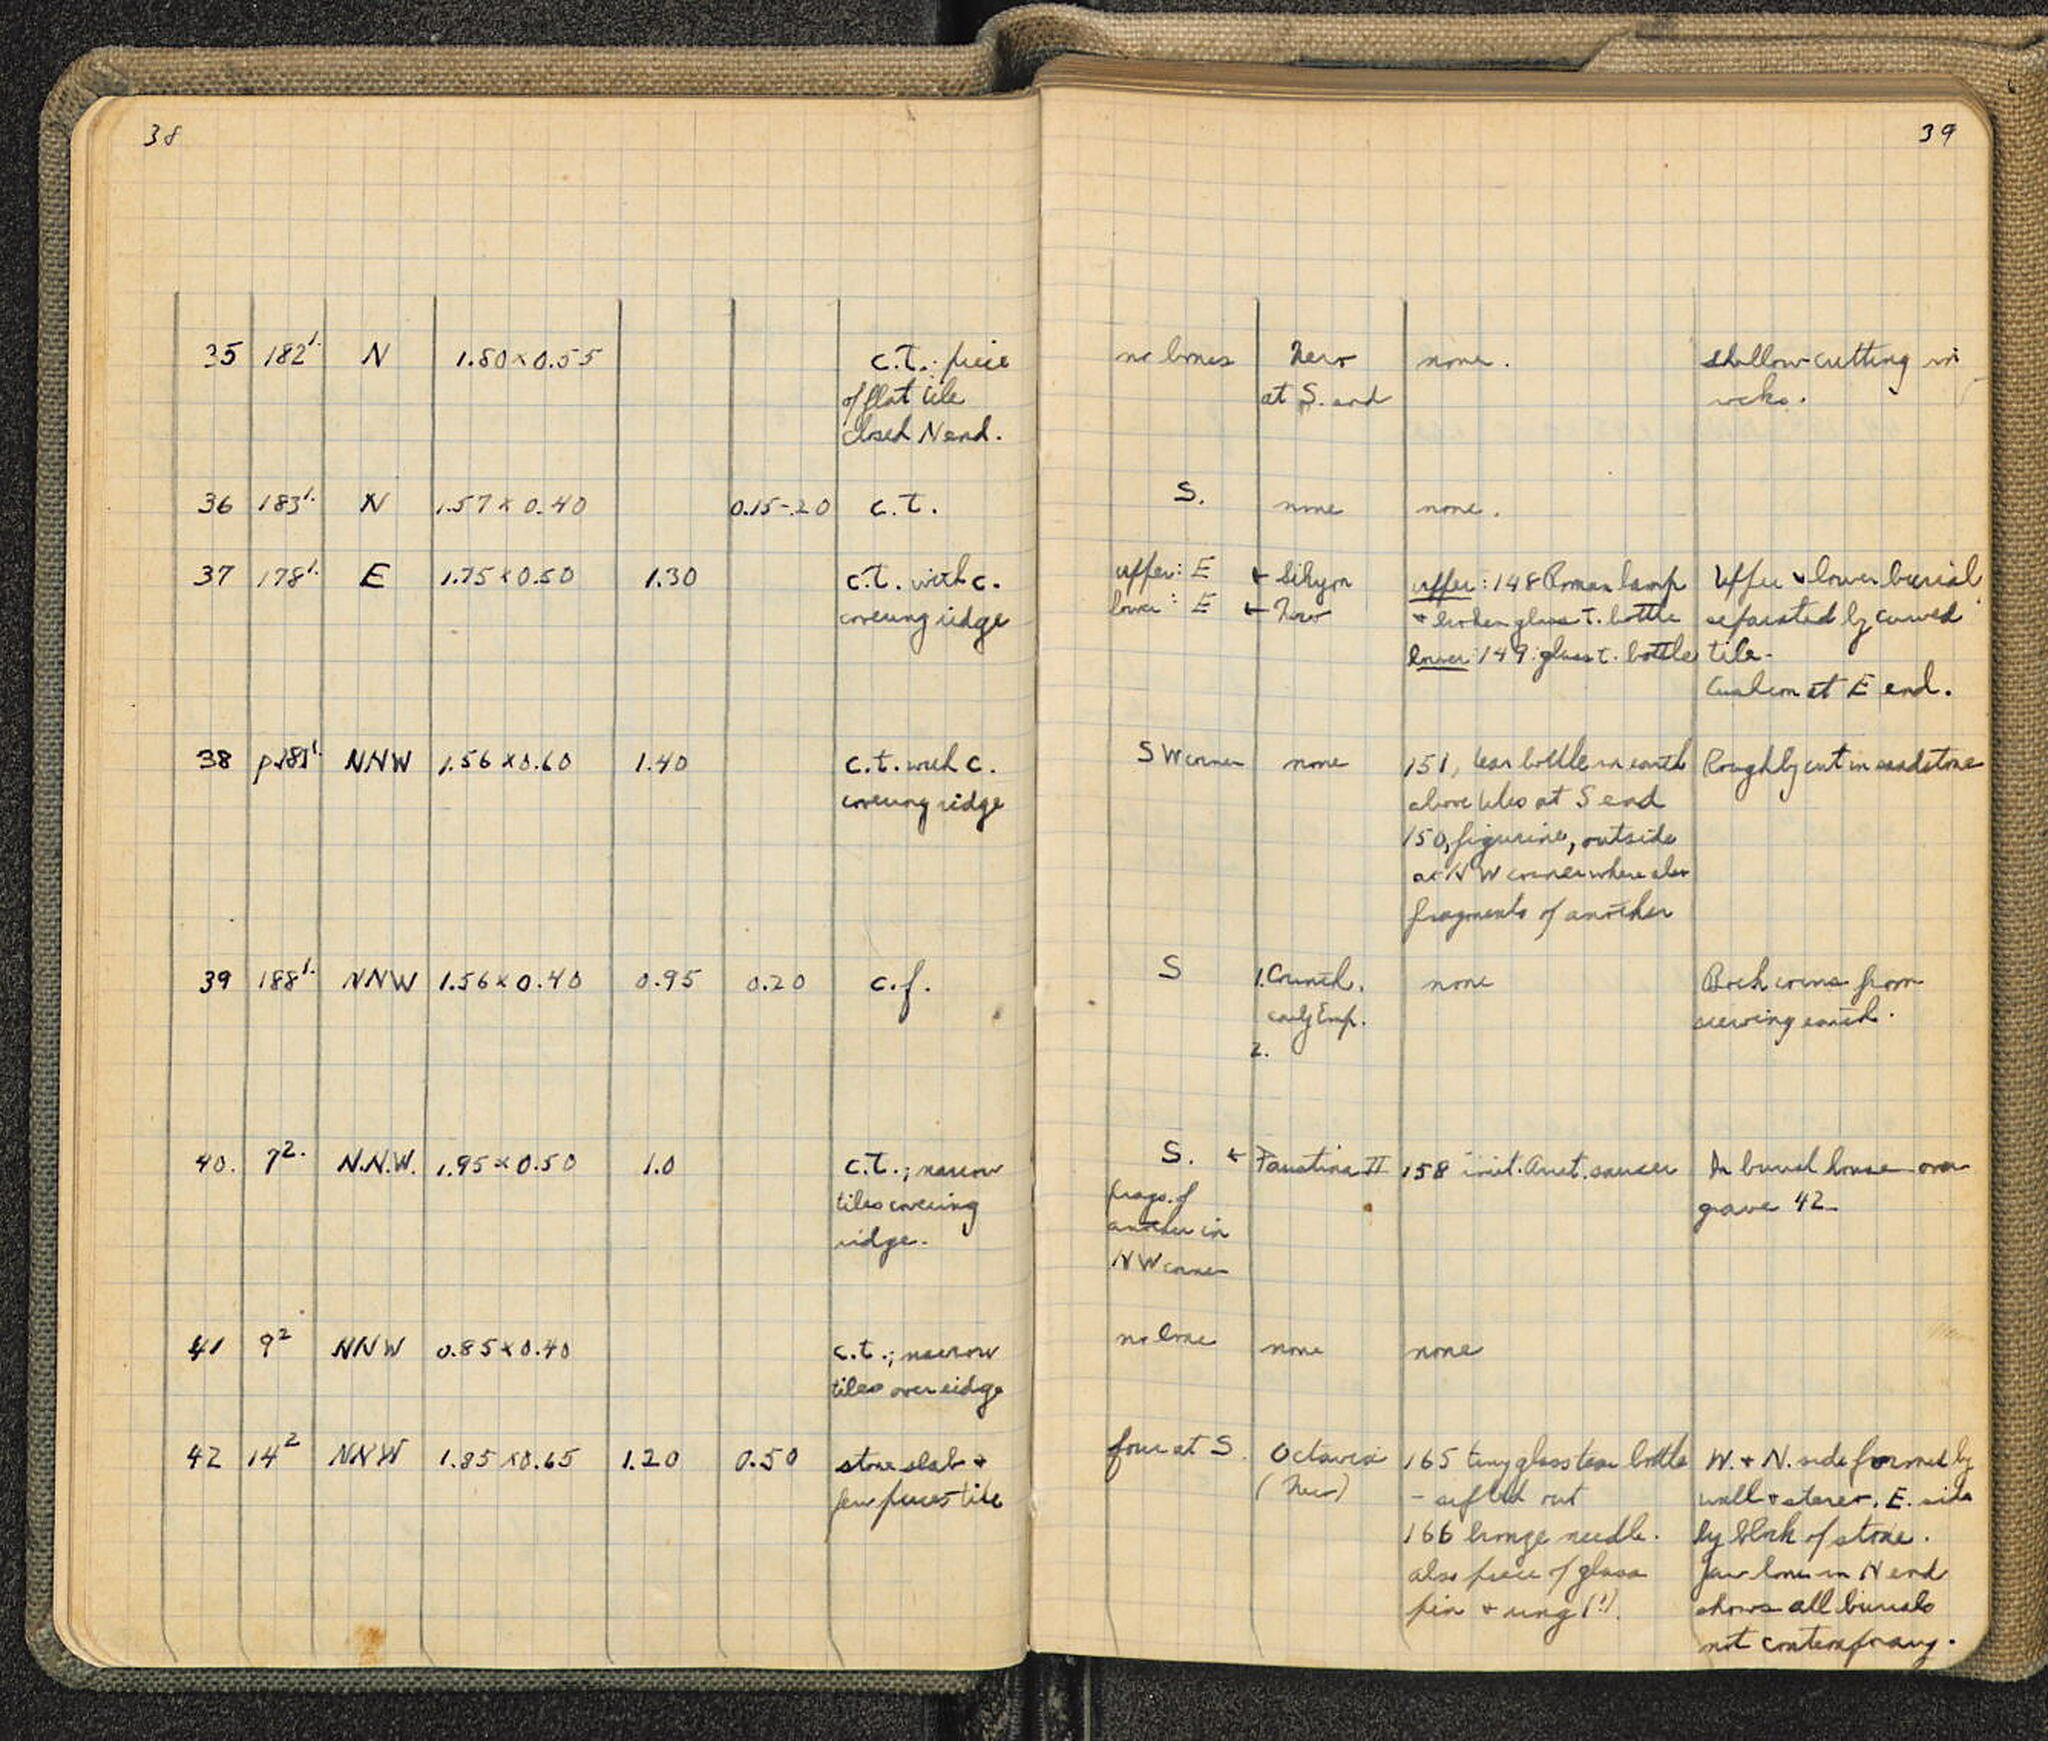 38
35 182¹· N 1.80 x 0.55 c.t.: piece
of flat tile
closed N end.
36 183¹· N 1.57 x 0.40 0.15-.20 c.t.
37 178¹· E 1.75 x 0.50 1.30 c.t. with c.
covering ridge
38 NNW 1.56 x 0.60 1.40 c.t. with c.
covering ridge
39 188¹· NNW 1.56 x 0.40 0.95 0.20 c.f.
40. 7²· N.N.W. 1.95 x 0.50 1.0 c.t.; narrow
tiles covering
ridge.
41 9² NNW 0.85 x 0.40 c.t.; narrow
tiles over ridge
42 14² NNW 1.85 x 0.65 1.20 0.50 stone slab +
few pieces tile
39
no bones Nero none. shallow cutting in
at S. end
S. none none.
upper: E ← Sikyon upper: 148 Roman lamp Upper + lower burial
lower: E ← Nero + broken glass t. bottle separated by curved
lower: 149: glass t. bottle tile.
Cushion at E end.
SW corner none 151, tear bottle in earth Roughly cut in sandstone
above tiles at S end
150, figurine, outside
at NW corner where also
fragments of another
S 1. Corinth. none Both coins from
early Emp. sieving earth.
2.
S. ← Faustina II 158 imit. Arret. saucer In burial house over
frags. of grave 42
another in
NW corner
no bone none none
four at S. Octavia 165 tiny glass tear bottle W. + N. side formed by
(Nero) - sifted out wall + stereo, E. side
166 bronze needle. by block of stone.
also piece of glass Jaw bone in N end
pin + ring (!). shows all burials
not contemporary.